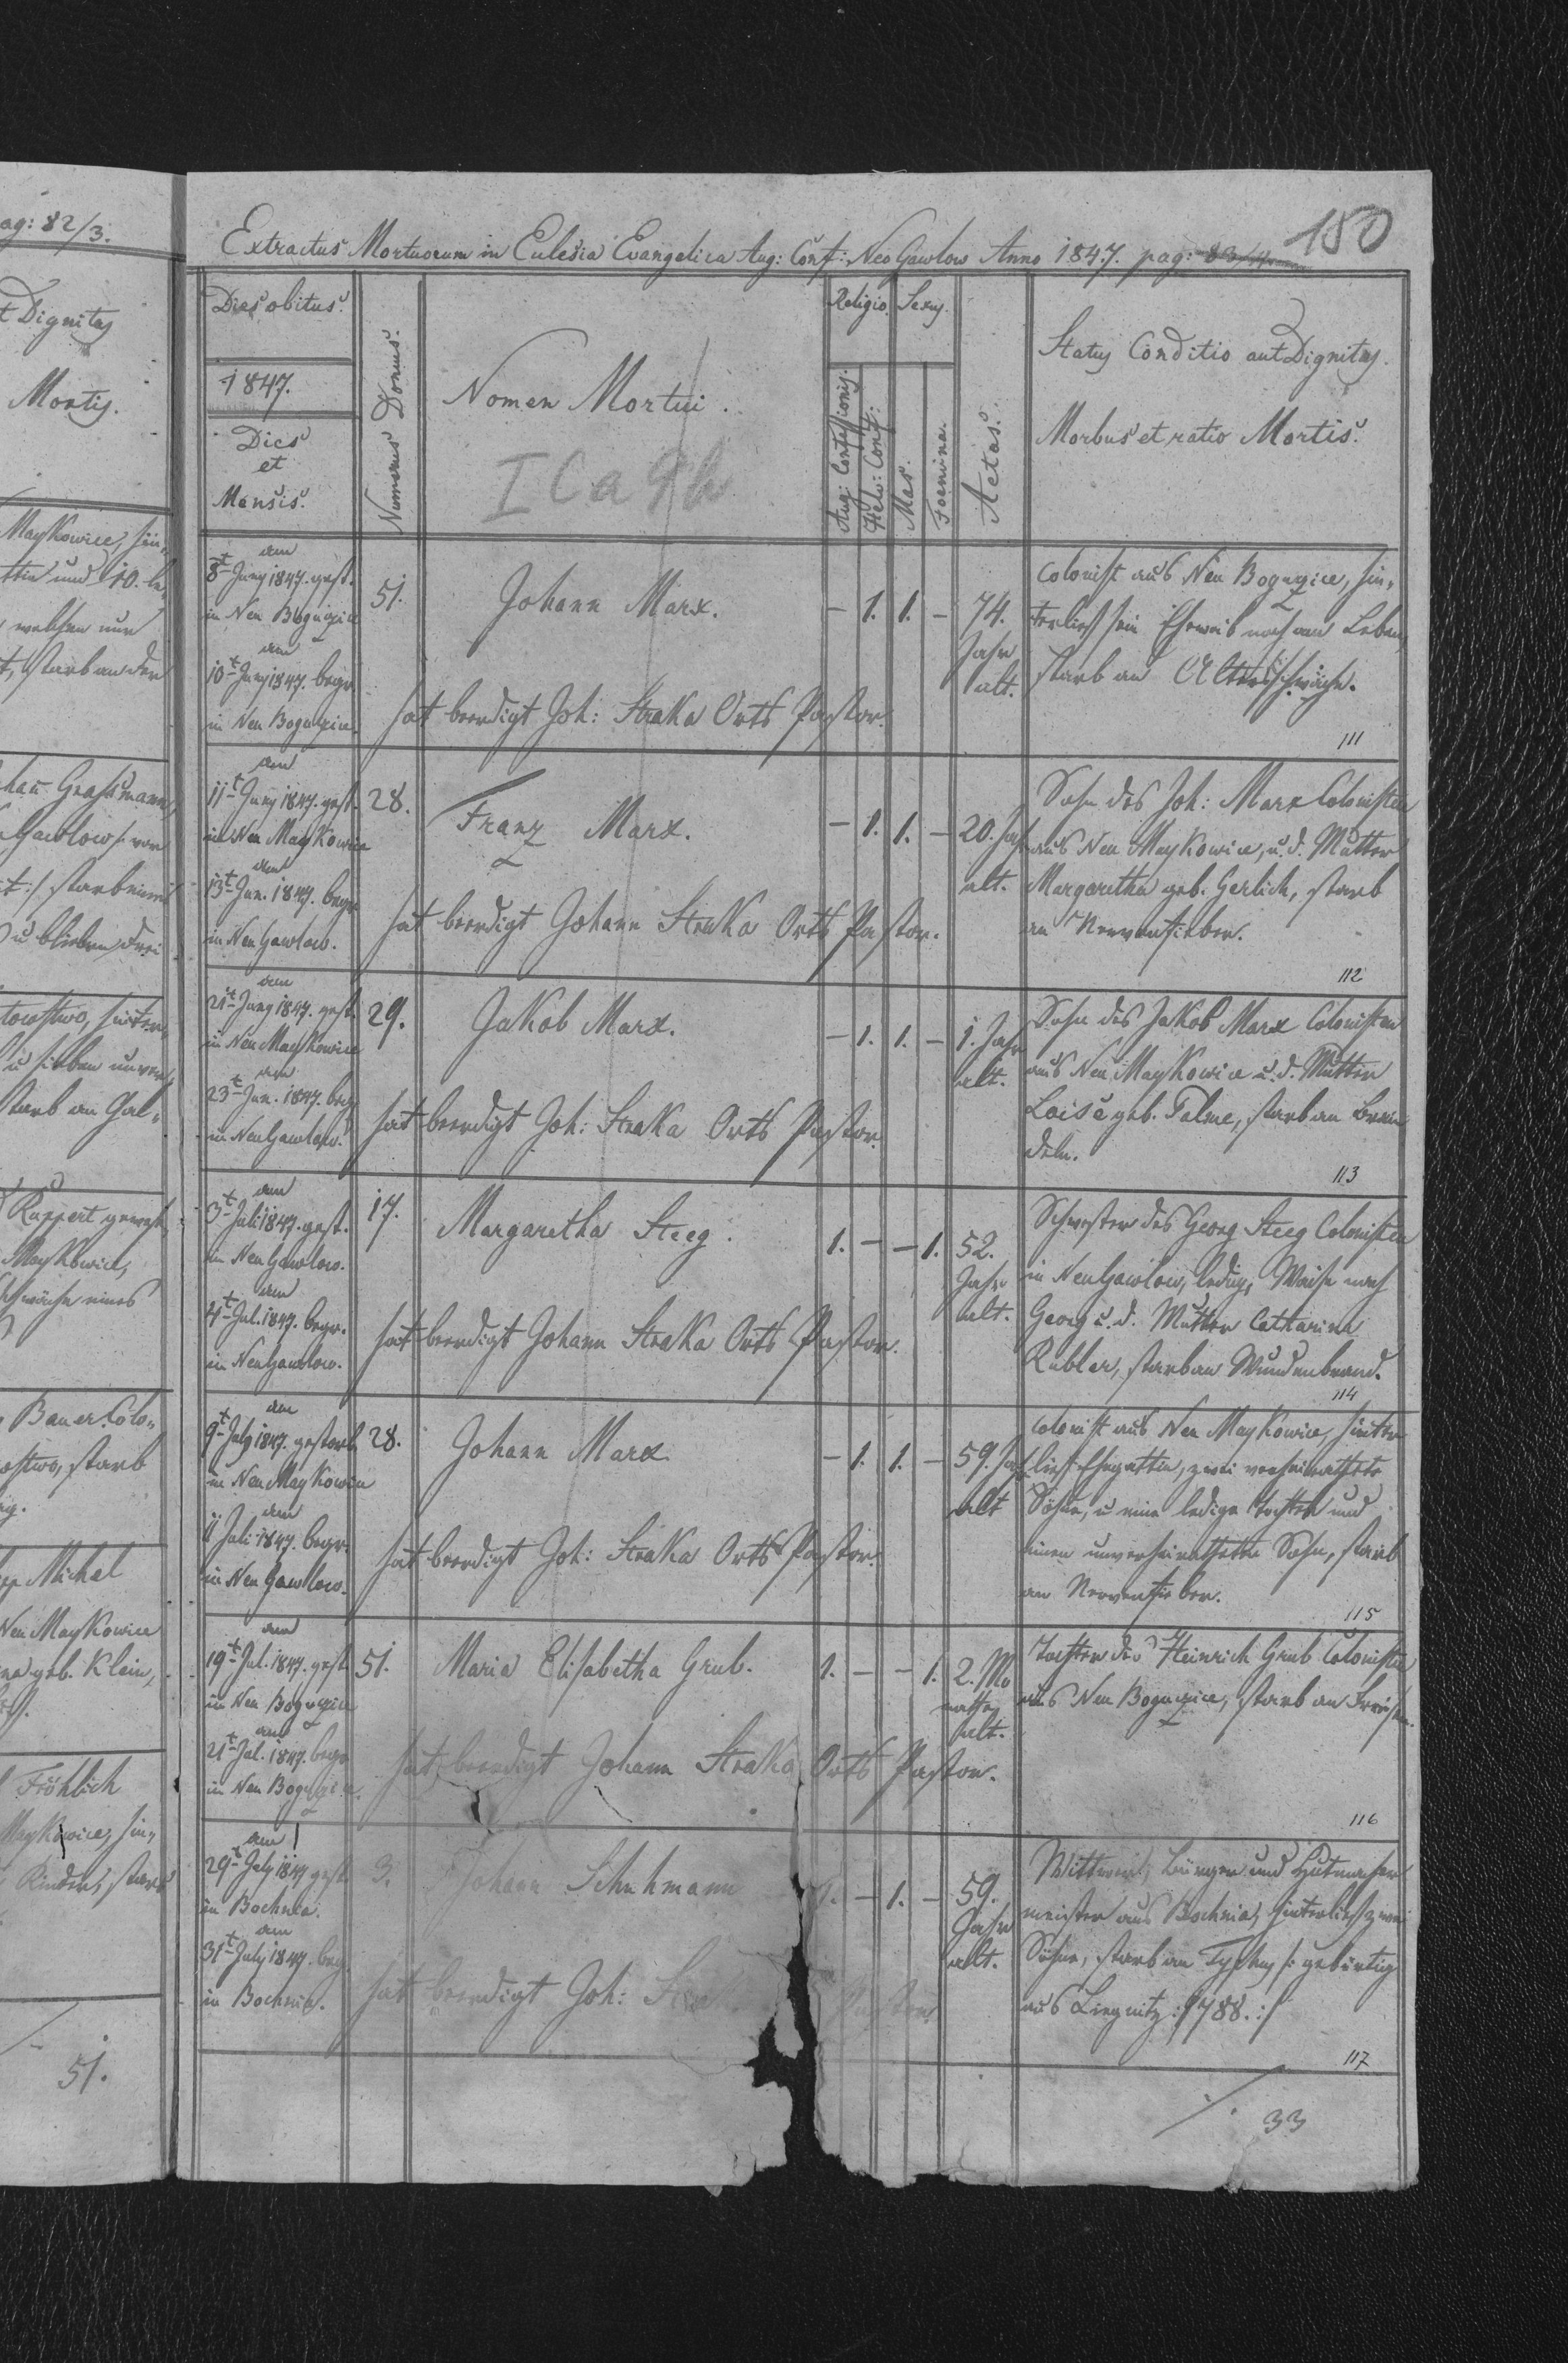 ag: 82/3.
t Dignitas
Mortis.
Maykowice, hin-
ttin und 10. le-
welchen nur
t, starb an der
hañ Grassmann,
Gawlow /: von
t :/ starb
u blieben drei
towstwo, hinter-
u sieben unver-
starb an Gal-
Ruppert
Maykowice,
schwäche eines
Bauer Colo-
ostwo, starb
Michel
Neu Maykowice
geb. Klein,
Fröhlich
Maykowice, hin-
Kinder, starb
51.
150
Extractus Mortuorum in Eclesia Evangelica Aug: Conf: Neo Gawlow Anno 1847. pag: 83/
Dies obitus.
1847.
Dies
et
Mensis.
Numerus Domus.
Nomen Mortui.
I C a 9 b
Religio
Aug: Confessionis.
Helv: Conf:
Sexus.
Mas.
Foemina.
Aetas.
Status Conditio aut Dignitas.
Morbus et ratio Mortis.
am
8t Juny 1847. gest.
in Neu Bogucice
am
10t Juny 1847. begr.
in Neu Bogucice.
51.
Johann Marx.
hat beerdigt Joh: Straka Orts Pastor.
- 1. 1. -
74.
Jahr
alt.
Colonist aus Neu Bogucice, hin-
terließ sein Eheweib noch am Leben,
starb an Altersschwäche.
111
am
11t Juny 1847. gest.
in Neu Maykowice
am
13t Jun. 1847. begr.
in Neu Gawlow.
28.
Franz Marx.
hat beerdigt Johann Straka Orts Pastor.
- 1. 1. -
20. Jahr
alt.
Sohn des Joh: Marx Colonisten
aus Neu Maykowice, u. d. Mutter
Margaretha geb. Gerlich, starb
an Nervenfieber.
112
am
21t Juny 1847. gest.
in Neu Maykowice
am
23t Jun. 1847. beg.
in Neu Gawlow.
29.
Jakob Marx.
hat beerdigt Joh: Straka Orts Pastor.
- 1. 1. -
1. Jahr
alt.
Sohn des Jakob Marx Colonisten
aus Neu Maykowice u. d. Mutter
Loise geb. Talme, starb an
113
am
3t Juli 1847. gest.
in Neu Gawlow.
am
4t Jul. 1847. begr.
in Neu Gawlow.
17.
Margaretha Steeg.
hat beerdigt Johann Straka Orts Pastor.
1. - - 1.
52.
Jahr
alt.
Schwester des Georg Steeg Colonisten
in Neu Gawlow, ledig, Waise nach
Georg u. d. Mutter Catharina
Kubler, starb an Wundenbrand.
114
am
9t July 1847. gestorb
in Neu Maykowice
am
11 Juli 1847. begr.
in Neu Gawlow.
28.
Johann Marx
hat beerdigt Joh: Straka Orts Pastor.
- 1. 1. -
59. Jahr
alt
Colonist aus Neu Maykowice, hinter-
ließ Ehegattin, zwei verheirathete
Söhne, u eine ledige Tochter und
einen unverheiratheten Sohn, starb
an Nervenfieber.
115
am
19t Jul. 1847. gest
in Neu Bogucice
am
21t Jul. 1847. begr
in Neu Bogucice.
51.
Maria Elisabetha Grub.
hat beerdigt Johann Straka Orts Pastor.
1. - - 1.
2. Mo
nathe
alt.
Tochter des Heinrich Grub Colonisten
aus Neu Bogucice, starb an Fraisen.
116
am
29t July 1847 gest
in Bochnia.
am
31t July 1847. beg.
in Bochnia.
3.
Johann Schuhmann
hat beerdigt Joh: Stra Pastor
1. - 1. -
59.
Jahr
alt.
Wittwer, Bürger und Hutmacher
meister aus Bochnia, hinterließ zwei
Söhne, starb an Typhus /: gebürtig
aus Liegnitz: 1788. :/
117
33